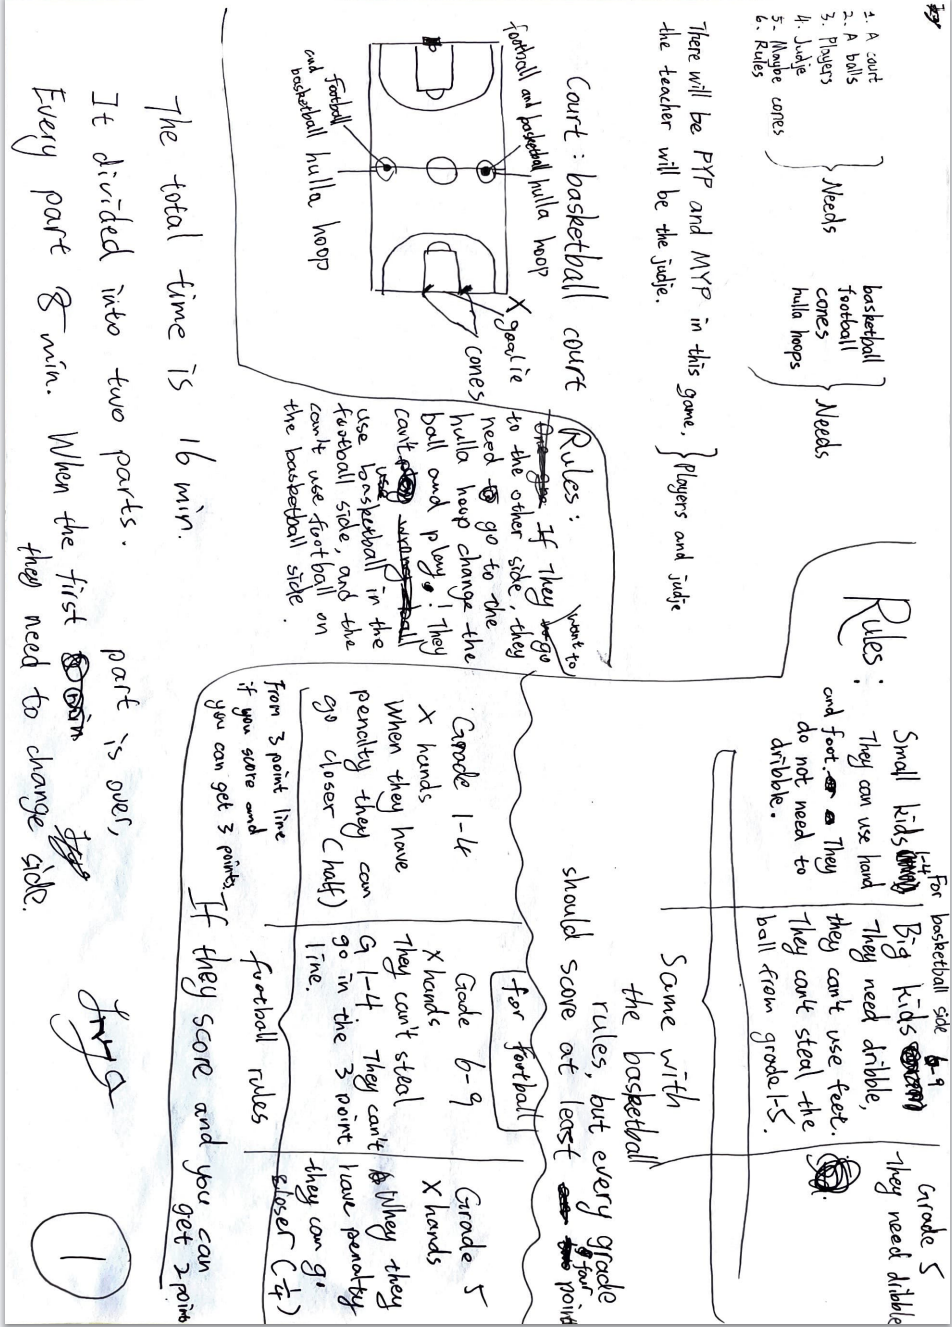 1. A court
2. A balls
3. Players
4. Judje
5. Maybe cones
6. Rules
Needs
basketball
football
cones
hulla hoops
Needs
There will be PYP and MYP in this game,
the teacher will be the judje.
Players and judje
Court : basketball court
football and basketball hulla hoop
football
and
basketball hulla hoop
X
goalie
cones
Rules :
If They want to go
to the other side, they
need to go to the
hulla hoop change the
ball and play! They
can't
use basketball in the
football side, and the
can't use football on
the basketball side.
The total time is 16 min.
It divided into two parts.
Every part 8 min. When the first part is over,
they need to change side.
Rules :
For basketball side
Small kids 1-4
They can use hand
and foot. They
do not need to
dribble.
Big kids 6-9
They need dribble,
they can't use feet.
They can't steal the
ball from grade 1-5.
Grade 5
They need dribble
Same with
the basketball
rules, but every grade
should score at least four point
for football
Grade 1-4
X hands
When they have
penalty they can
go closer (half)
Gade 6-9
X hands
They can't steal
G 1-4 They can't
go in the 3 point
line.
Grade 5
X hands
Whey they
have penalty
they can go
closer (1/4)
football rules
From 3 point line
if you score and
you can get 3 points
If they score and you can
get 2 points
1